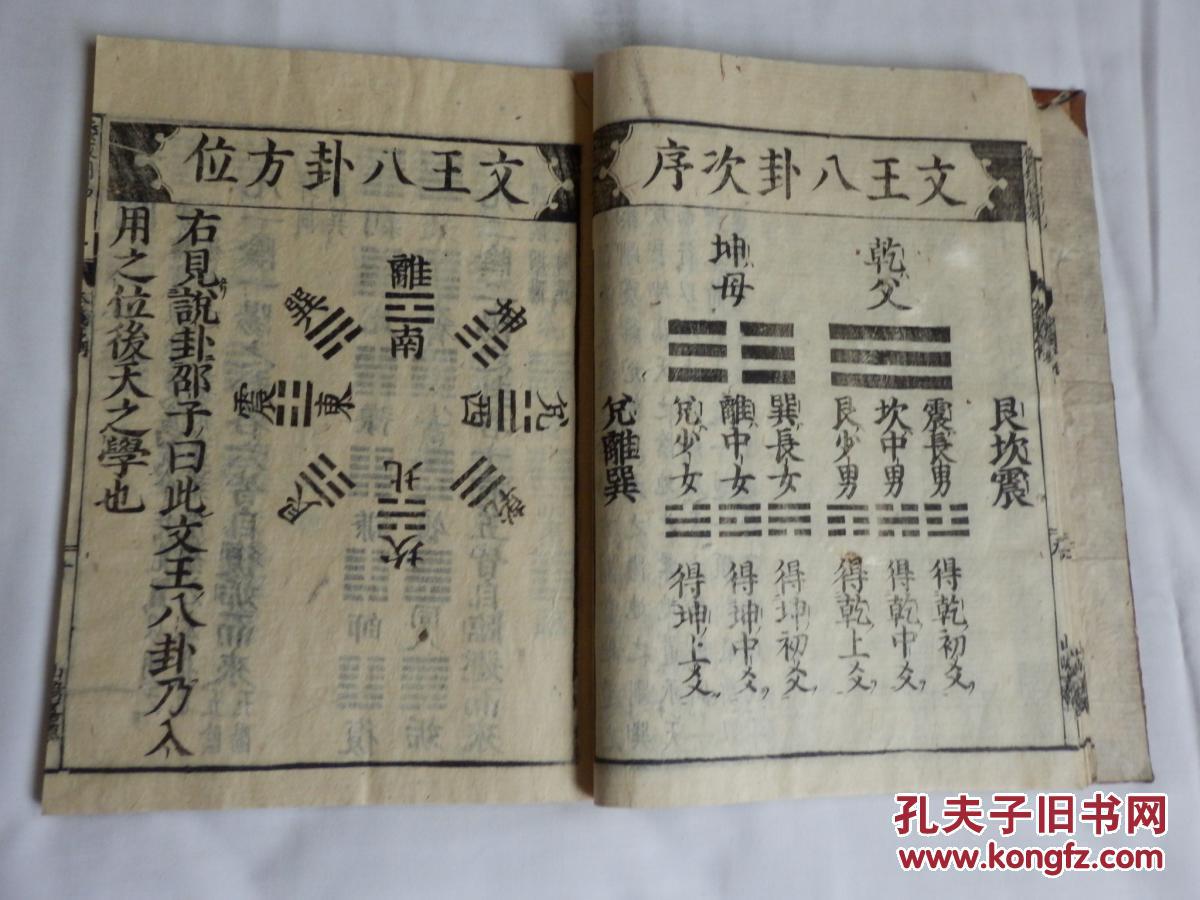 文王八卦次序
乾父
坤母
艮坎震
震長男
坎中男
艮少男
巽長女
離中女
兌少女
兌離巽
得乾初爻
得乾中爻
得乾上爻
得坤初爻
得坤中爻
得坤上爻
文王八卦方位
離
南
坤
兌
西
乾
北
坎
艮
震
東
巽
右見說卦邵子曰此文王八卦乃入
用之位後天之學也
孔夫子旧书网
www.kongfz.com